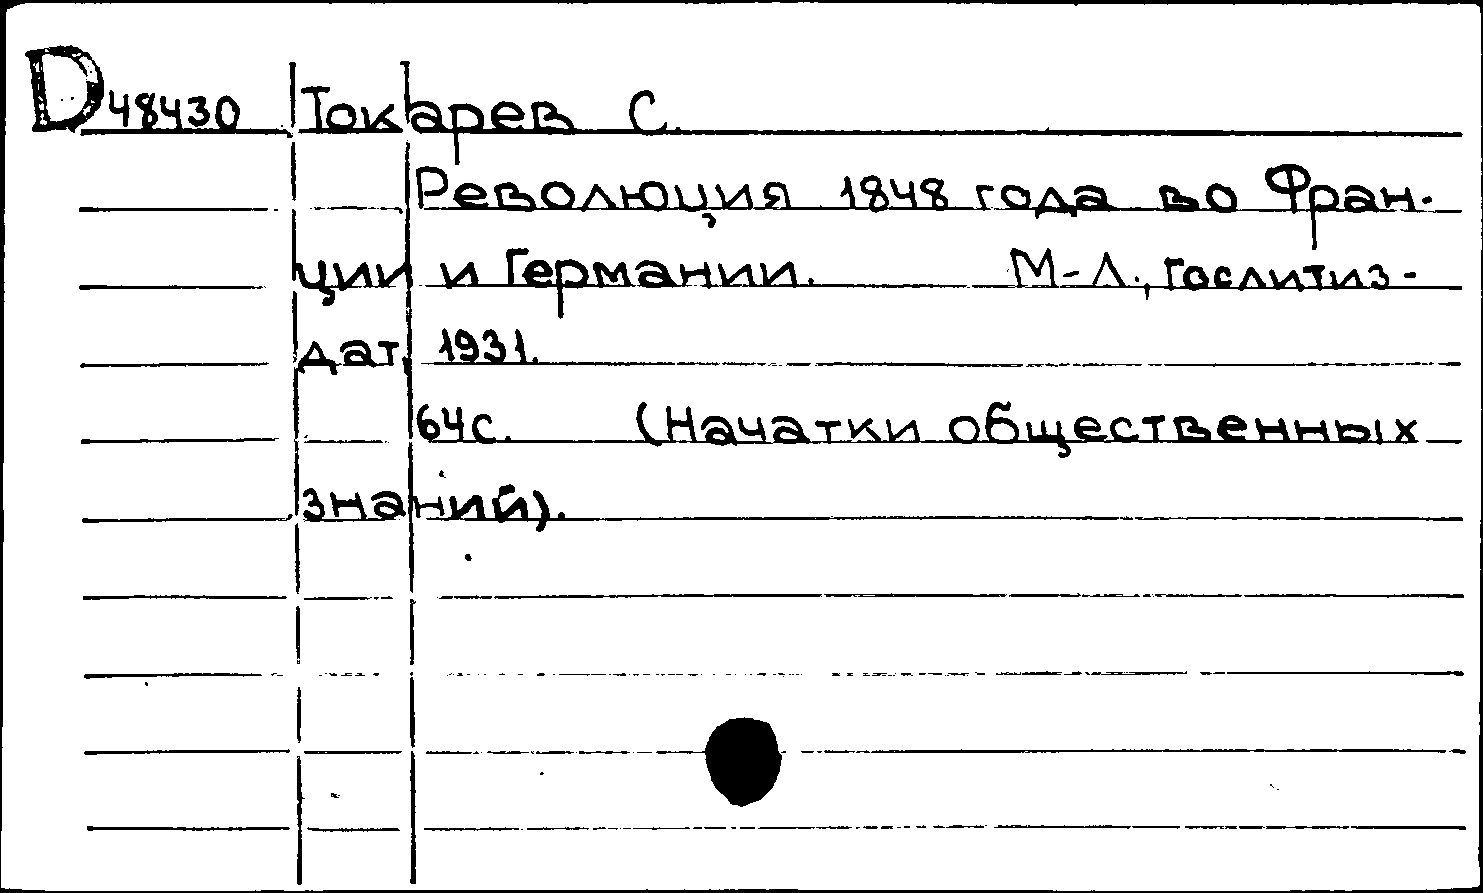 D 48430 Токарев С.
Революция 1848 года во Фран-
ции и Германии. М-Л., Гослитиз-
дат, 1931.
64с. (Начатки общественных
знаний).